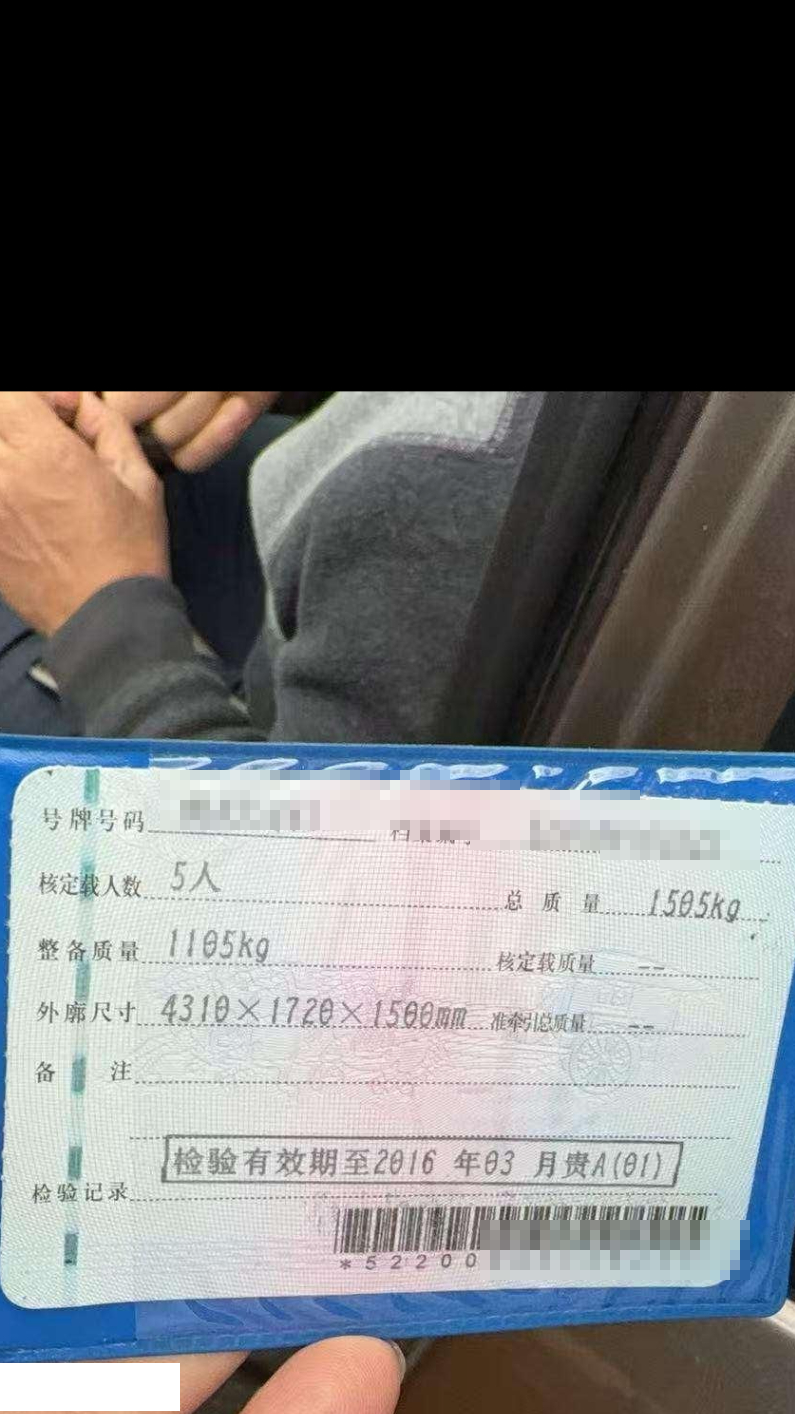 号牌号码
核定载人数 5人 总质量 1505kg
整备质量 1105kg 核定载质量 --
外廓尺寸 4310×1720×1500mm 准牵引总质量 --
备注
检验有效期至2016年03月贵A(01)
检验记录
*52200